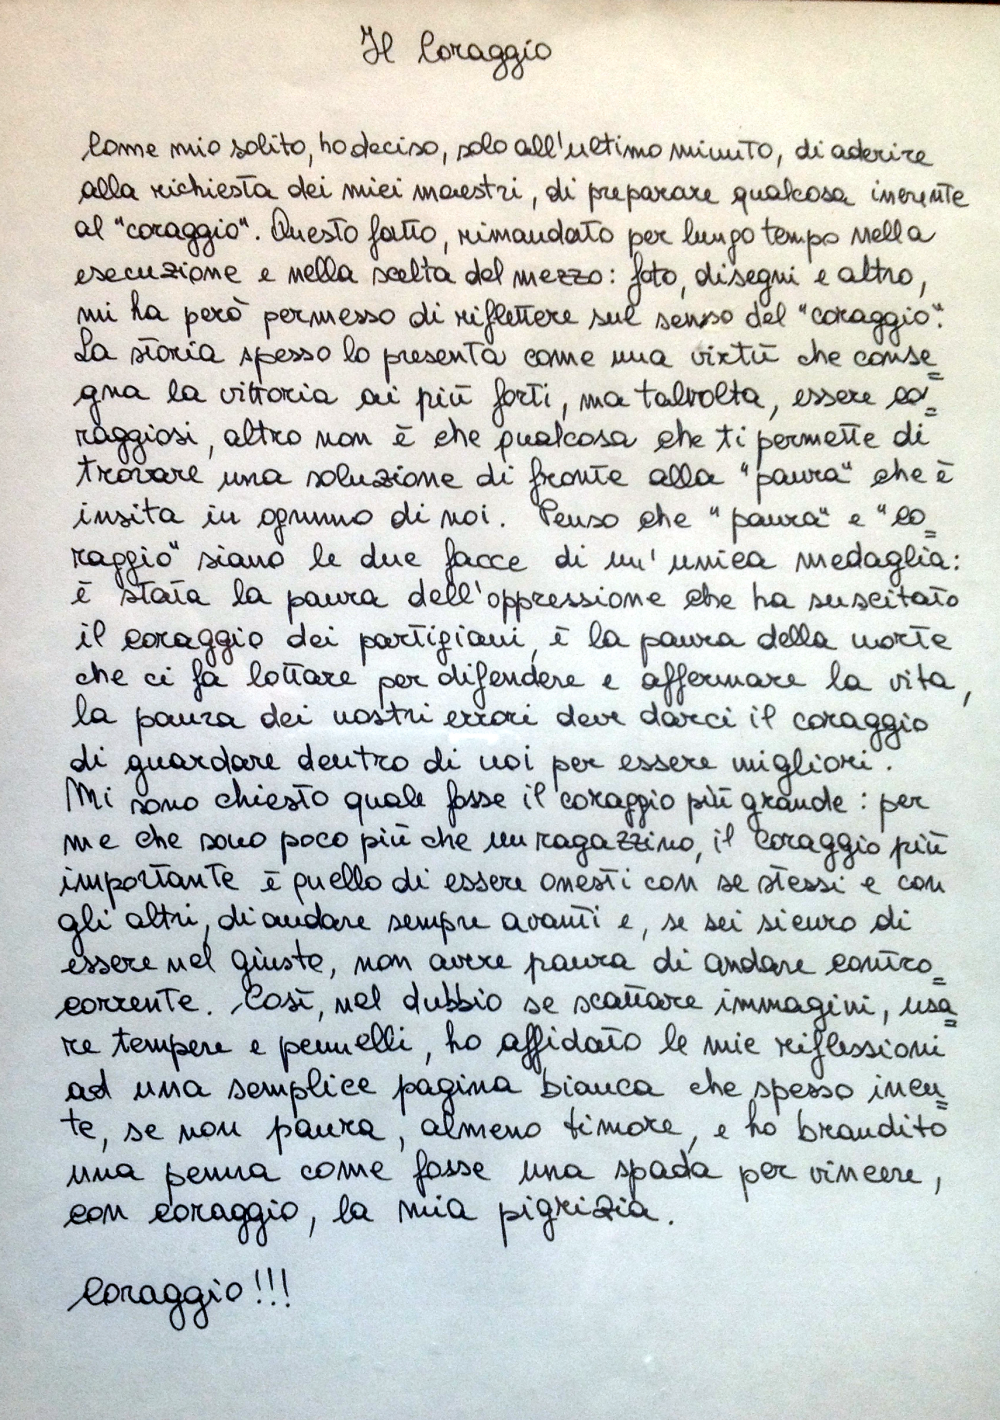 Il Coraggio
Come mio solito, ho deciso, solo all'ultimo minuto, di aderire
alla richiesta dei miei maestri, di preparare qualcosa inerente
al "coraggio". Questo fatto, rimandato per lungo tempo nella
esecuzione e nella scelta del mezzo: foto, disegni e altro,
mi ha però permesso di riflettere sul senso del "coraggio".
La storia spesso lo presenta come una virtù che conse=
gna la vittoria ai più forti, ma talvolta, essere co=
raggiosi, altro non è che qualcosa che ti permette di
trovare una soluzione di fronte alla "paura" che è
insita in ognuno di noi. Penso che "paura" e "co=
raggio" siano le due facce di un'unica medaglia:
è stata la paura dell'oppressione che ha suscitato
il coraggio dei partigiani, è la paura della morte
che ci fa lottare per difendere e affermare la vita,
la paura dei nostri errori deve darci il coraggio
di guardare dentro di noi per essere migliori.
Mi sono chiesto quale fosse il coraggio più grande: per
me che sono poco più che un ragazzino, il coraggio più
importante è quello di essere onesti con se stessi e con
gli altri, di andare sempre avanti e, se sei sicuro di
essere nel giusto, non avere paura di andare contro=
corrente. Così, nel dubbio se scattare immagini, usa=
re tempere e pennelli, ho affidato le mie riflessioni
ad una semplice pagina bianca che spesso incu=
te, se non paura, almeno timore, e ho brandito
una penna come fosse una spada per vincere,
con coraggio, la mia pigrizia.
Coraggio!!!